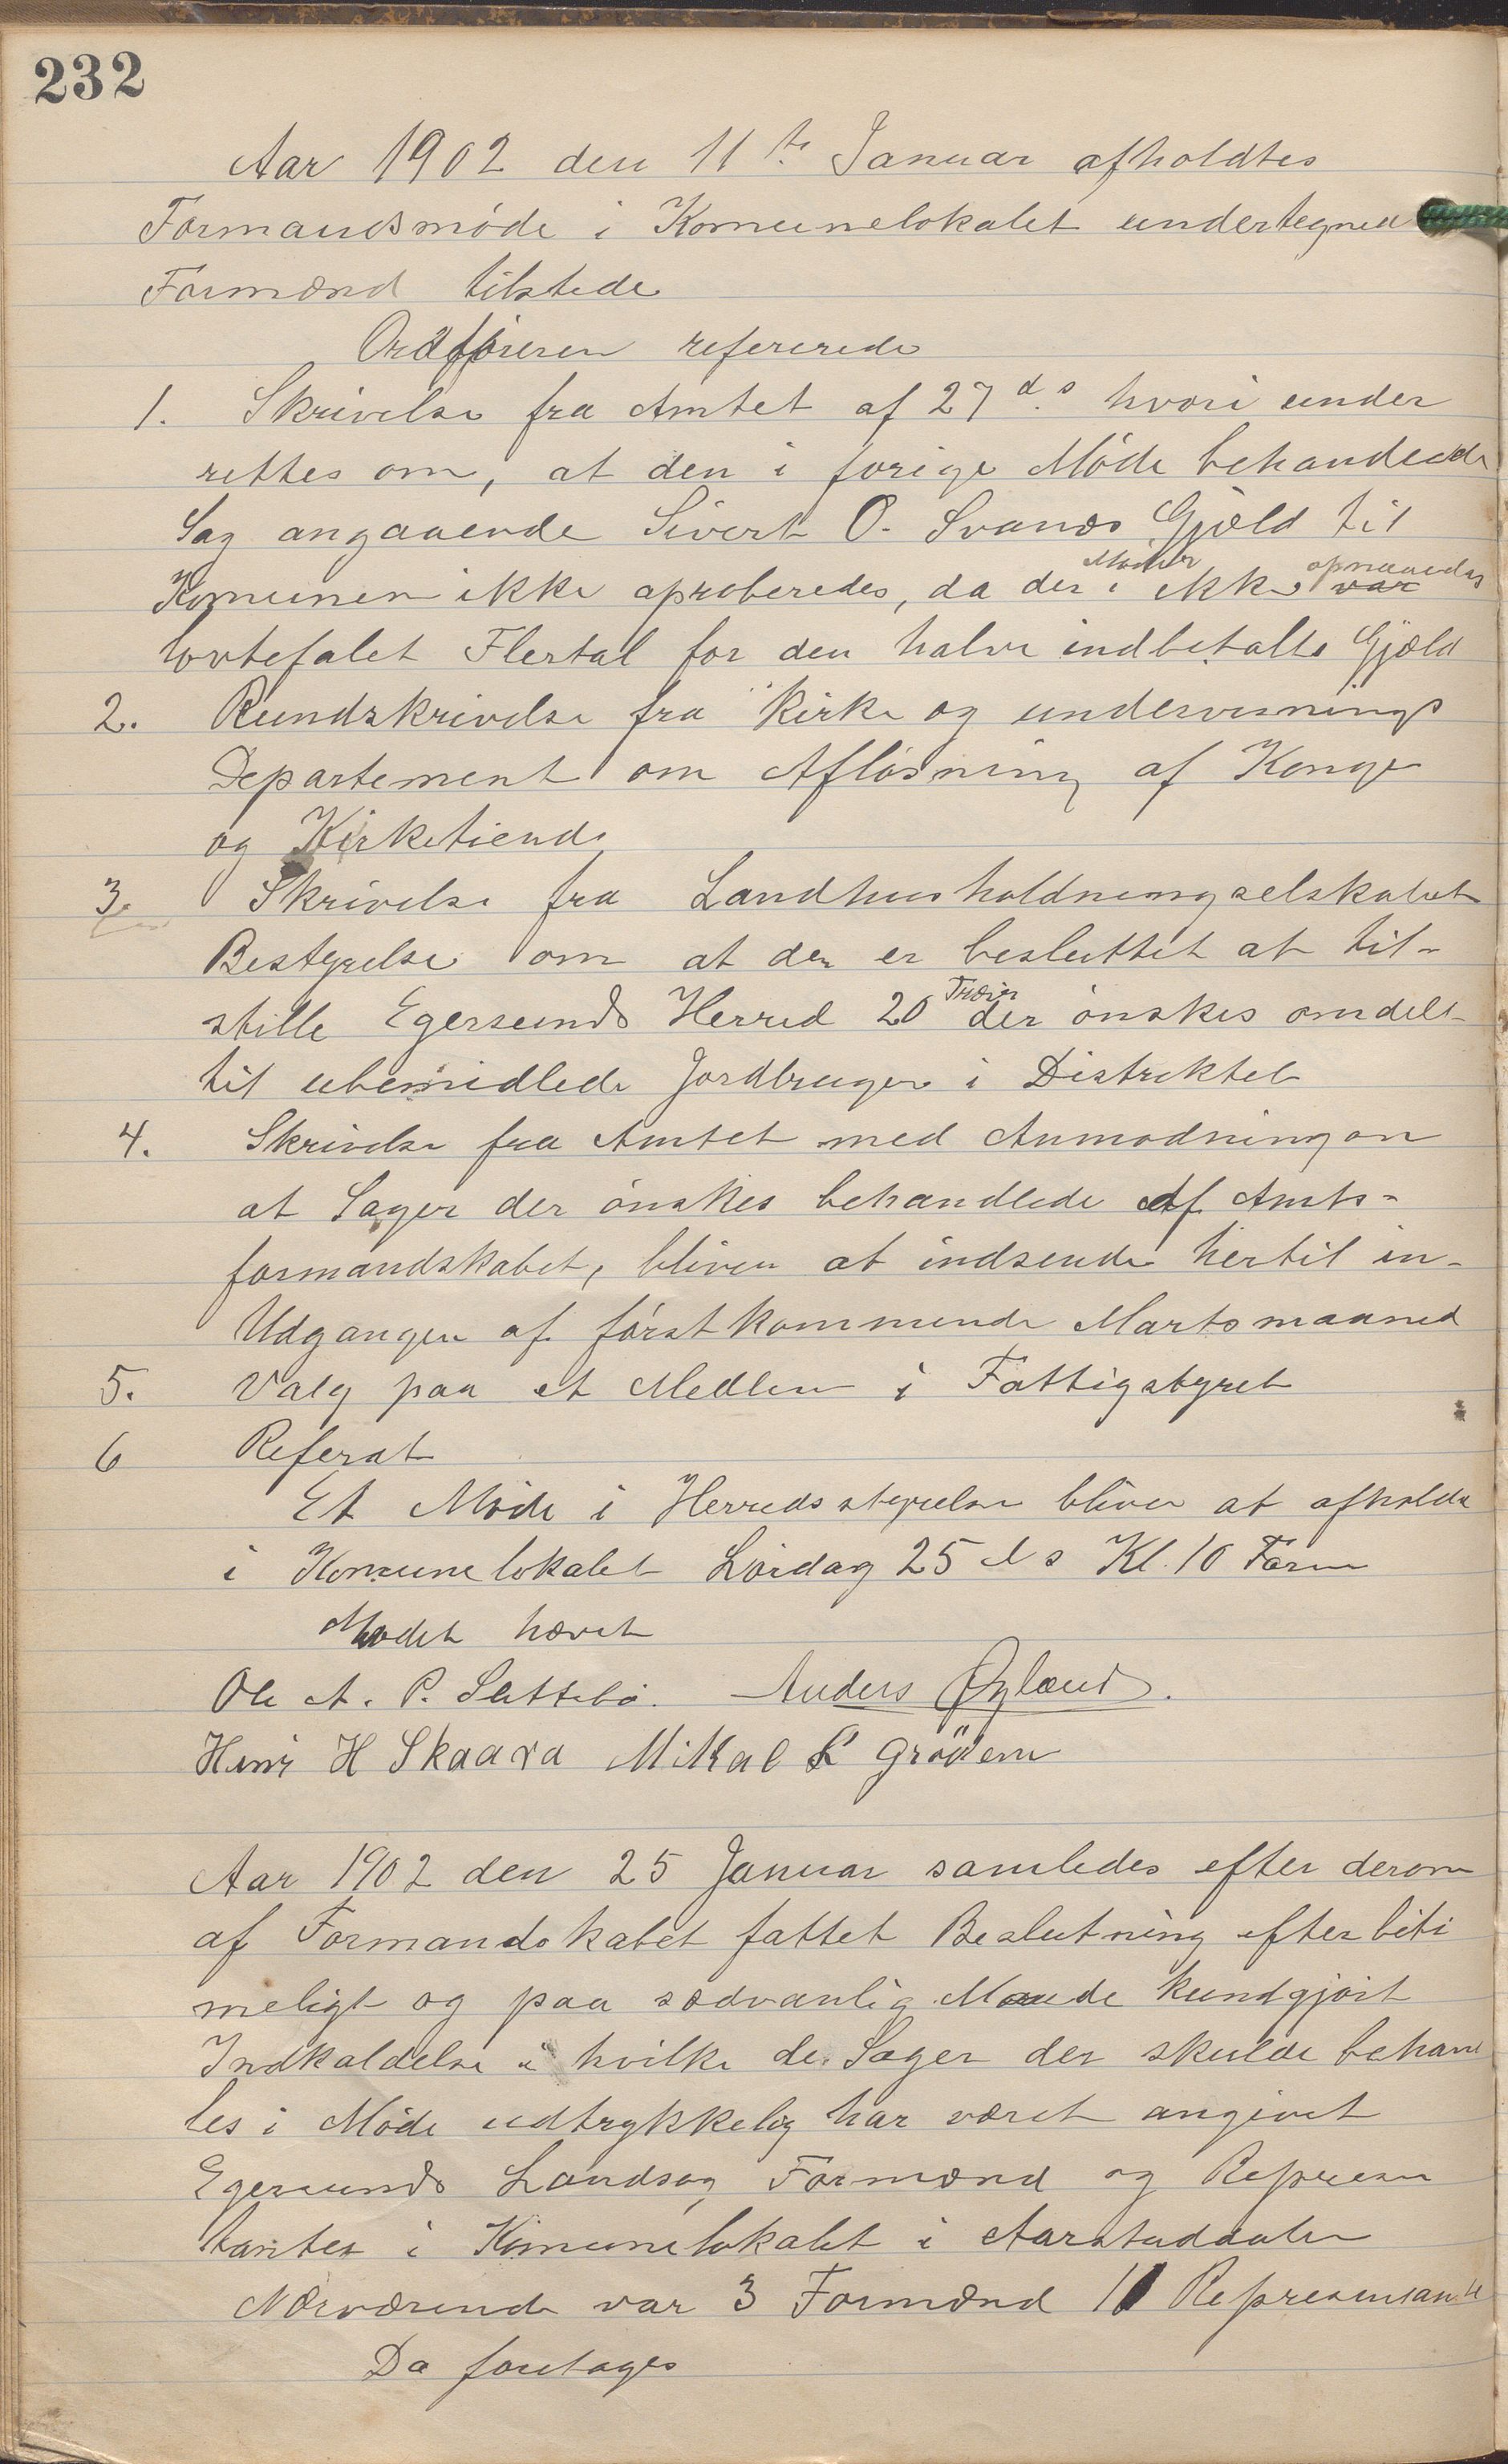 232
Aar 1902 den 11te Januar afholdtes
Formandsmöde i Komunelokalet undertegned
Formænd tilstede
Ordföreren refererede
1. Skrivelse fra Amtet af 27 ds hvori under
rettes om, at den i forige Möde behandlede
Sag angaaende Sivert O. Svanes Gjæld til
Komunen ikke aproberedes, da der i Mödet ikke var opnaaedes
lovbefalet Flertal for den halve indbetalte Gjæld
2. Rundskrivelse fra Kirke og undervisnings
Departement om Aflösning af Konge
og Kirketiende
3. Skrivelse fra Landhusholdningselskabet
Bestyrelse om at der er besluttet at til-
stille Egersunds Herred 20 Træer der önskes omdelt
til ubemidlede Jordbruger i Distriktet
4. Skrivelse fra Amtet med Anmodning om
at Sager der önskes behandlede af Amts-
formandskabet, bliver at indsende hertil in-
Udgangen af förstkommende Martsmaaned
5. Valg paa et Medlem i Fattigstyret
6 Referat
Et Möde i Herredsstyrelse bliver at afholde
i Komunelokalet Lördag 25 ds Kl. 10 Form
Mödet hævet
Ole A. P. Slettebö. Anders Øgland.
Henr H Skaara Mikal L Grödem
Aar 1902 den 25 Januar samledes efter derom
af Formandskabet fattet Beslutning efter beti
meligt og paa sædvanlig Maade kundgjört
Indkaldelse i hvilke de Sager der skulde behand
les i Möde udtrykkelig har været angivet
Egersunds Landsog Formænd og Represen
tanter i Komunelokalet i Aarstaddalen
Nærværende var 3 Formænd 11 Representante
Da foretages